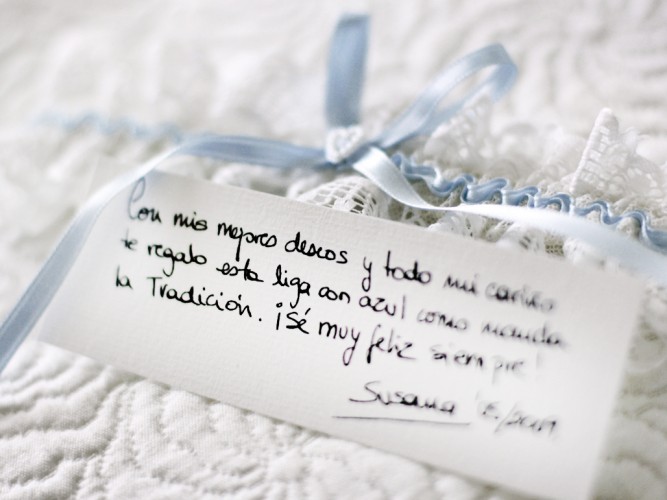 Con mis mejores deseos y todo mi cariño
te regalo esta liga con azul como manda
la Tradición. ¡Sé muy feliz siempre!
Susana